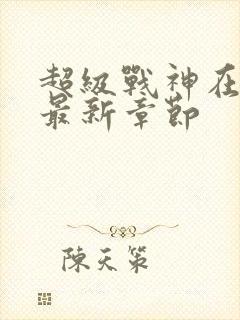 超級戰神在
最新章節
陳天策